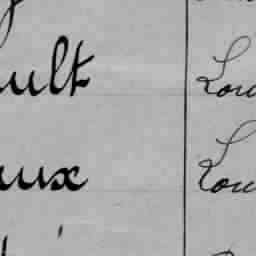 ult Lou
aux Lou